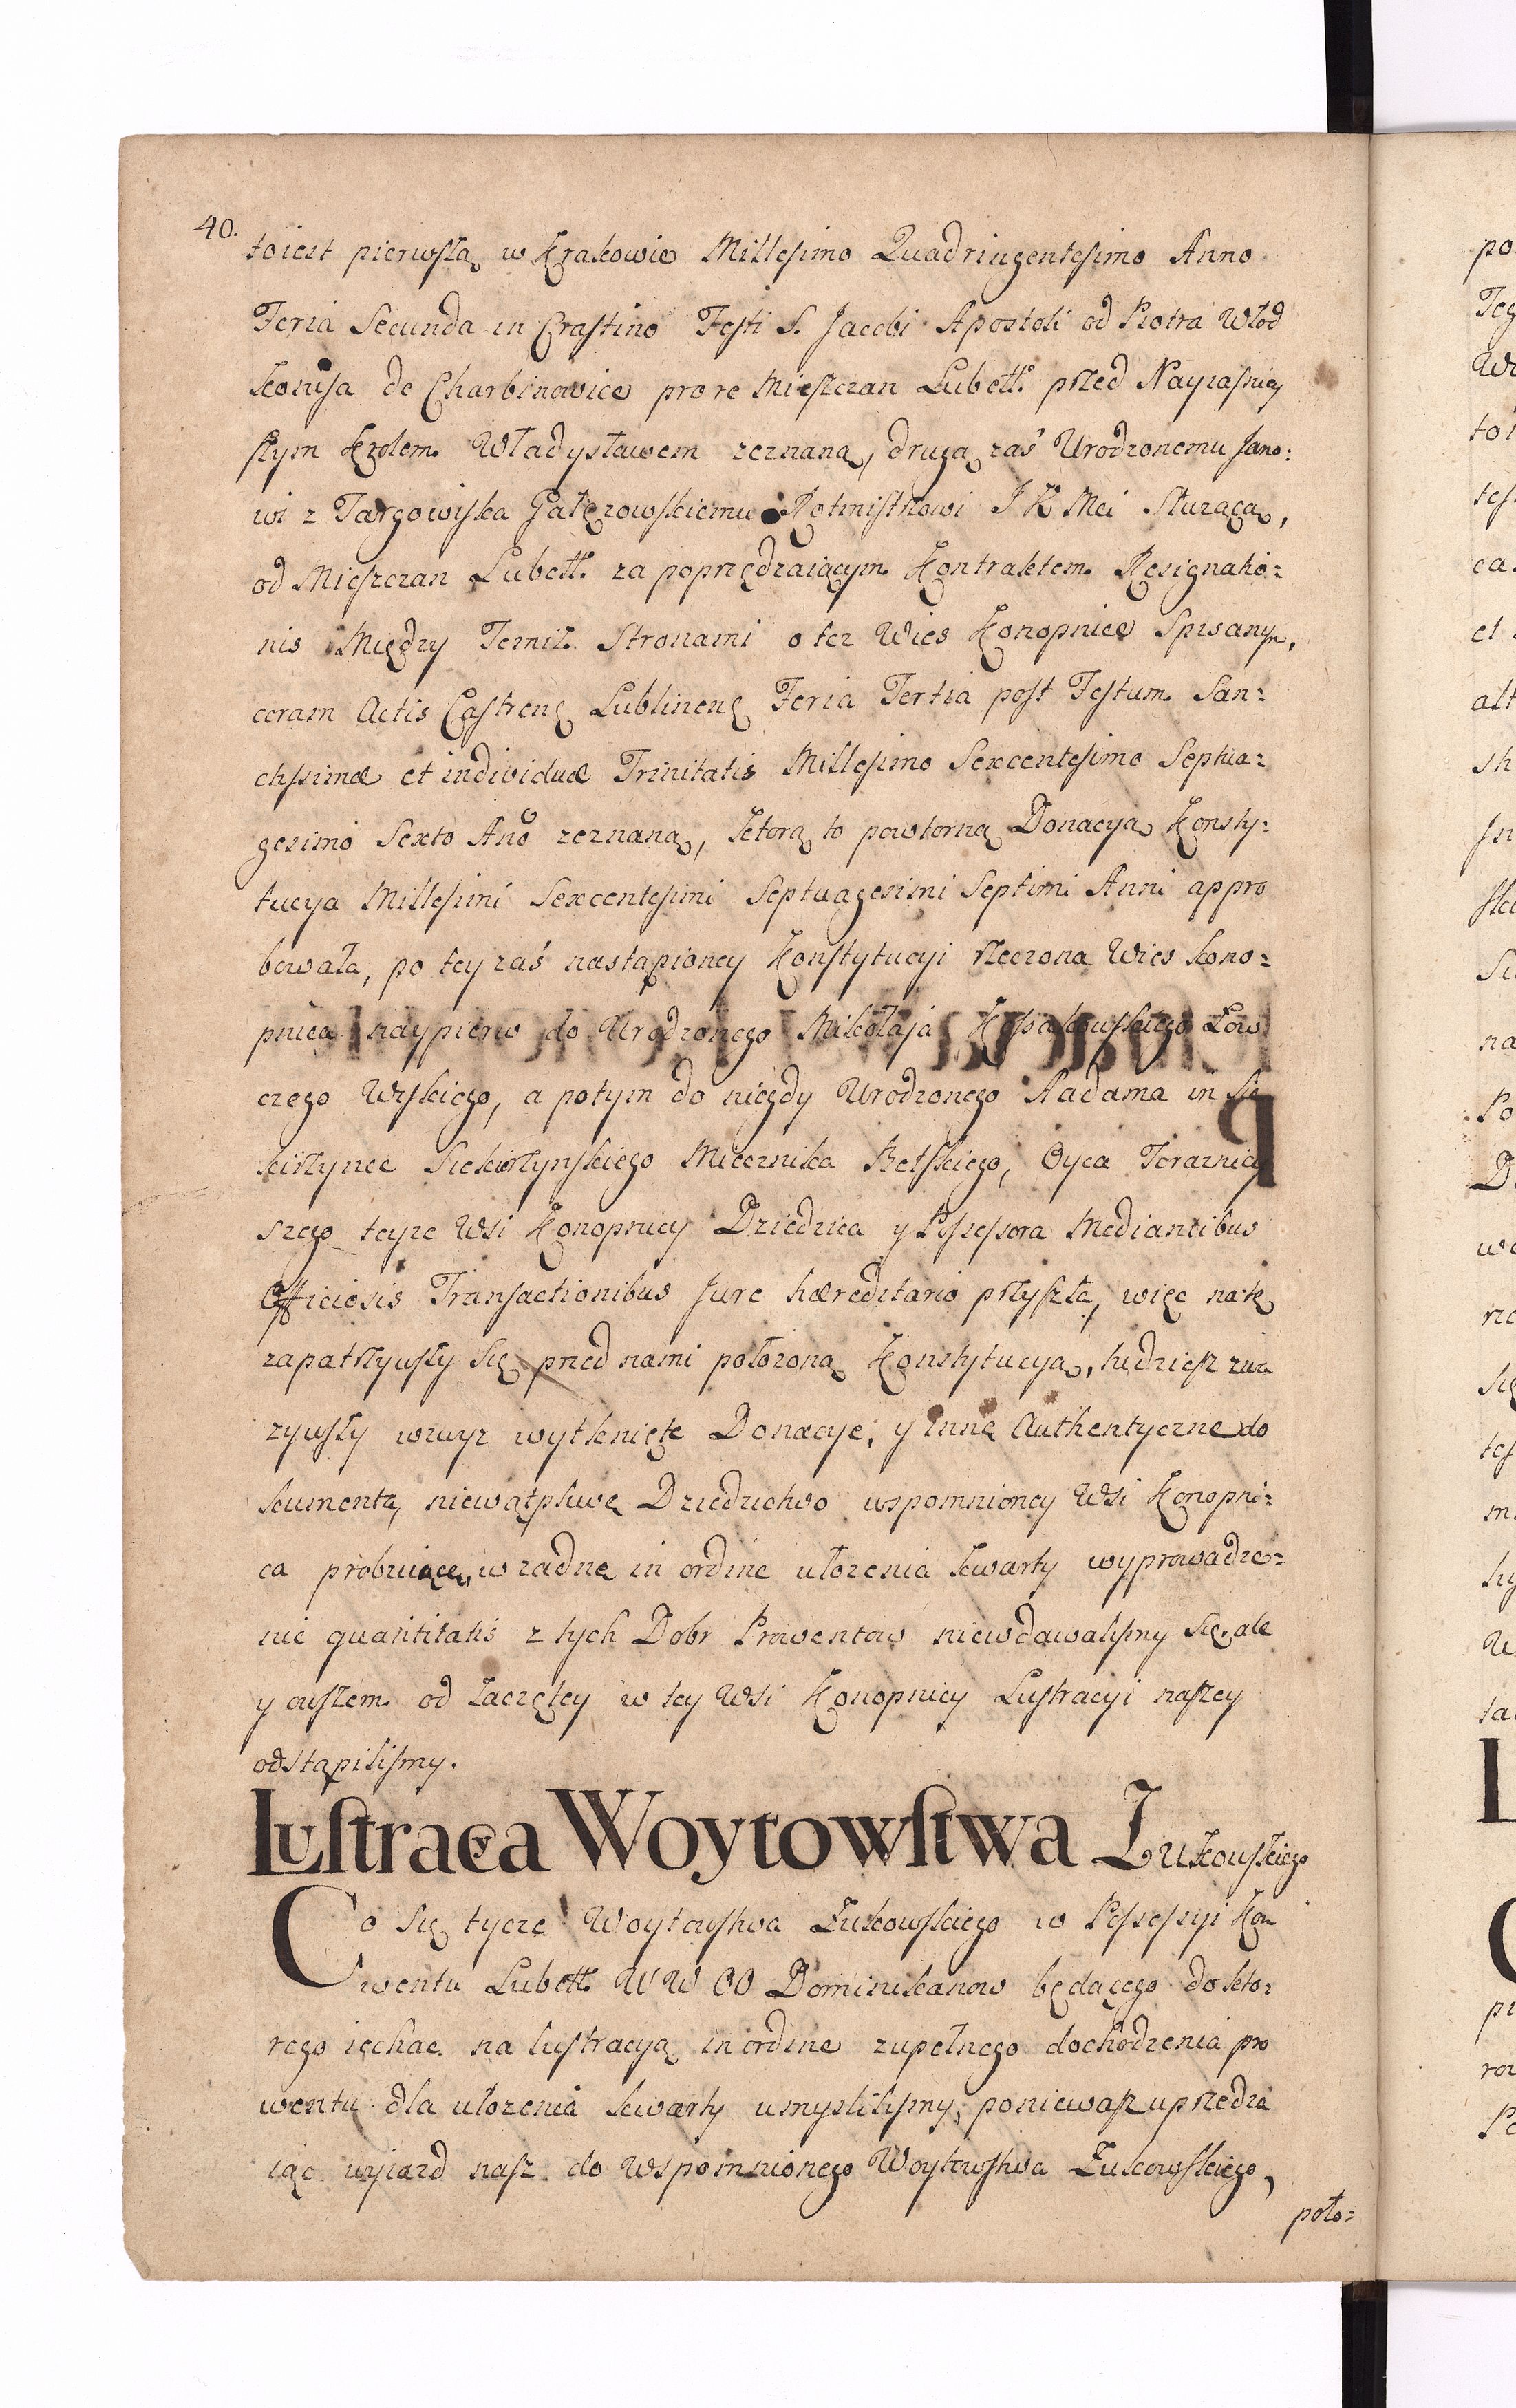 40.
toiest pierwszą w Krakowie Millesimo Quadringentesimo Anno
Feria Secunda in Crastino Festi S. Jacobi Apostoli od Piotra Włod
konisa de Charbinowice pro re Mieszczan Lubell. przed Nayiasniey
szym Krolem Władysławem zeznaną, drugą zaś Urodzonemu Jano:
wi z Targowiska Gałęzowskiemu Rotmistrzowi J K Mci Służącą,
od Mieszczan Lubell. za poprzędzaiącym Kontraktem Resignatio:
nis Między Temiż Stronami o też Wies Konopnice Spisanym,
coram Actis Castrens Lublinens Feria Tertia post Festum San:
ctissimæ et individuæ Trinitatis Millesimo Sexcentesimo Septua:
gesimo Sexto Ano zeznaną, ktorą to powtorną Donacyą Konsty:
tucya Millesimi Sexcentesimi Septuagesimi Septimi Anni appro
bowała, po tey zaś nastąpioney Konstytucyi rzeczona Wies Kono:
pnica naypierw do Urodzonego Mikołaja Łow
czego Wskiego, a potym do niegdy Urodzonego Aadama in Sie
kirzynce Siekierzynskiego Miecznika Bełskiego, Oyca Terazniey
szego teyze Wsi Konopnicy Dziedzica y Possessora Mediantibus
Officiosis Transactionibus Jure hæreditario przyszła, więc na tę
zapatrzywszy się przed nami położoną Konstytucyą, tudziesz zwa
zywszy wzwyz wytknięte Donacye, y Inne Authentyczne do
kumenta, niewątpliwe Dziedzictwo wspomnioney Wsi Konopni:
ca probuiące, w zadne in ordine ułozenia kwarty wyprowadze:
nie quantitatis z tych Dobr Prowentow niewdawalismy się, ale
y owszem od zaczętey w tey Wsi Konopnicy Lustracyi naszey
odstąpilismy.
Lustracya Woytowstwa Łukowskiego
Co Się tycze Woytowstwa Łukowskiego w Possessyi Kon
wentu Lubell. WW OO Dominikanow będącego do kto:
rego iechac na lustracyą in ordine zupełnego dochodzenia pro
wentu dla ułozenia kwarty umyslilismy, poniewasz uprzedza
iąc wyiazd nasz do Wspomnionego Woytowstwa Łukowskiego,
poło: